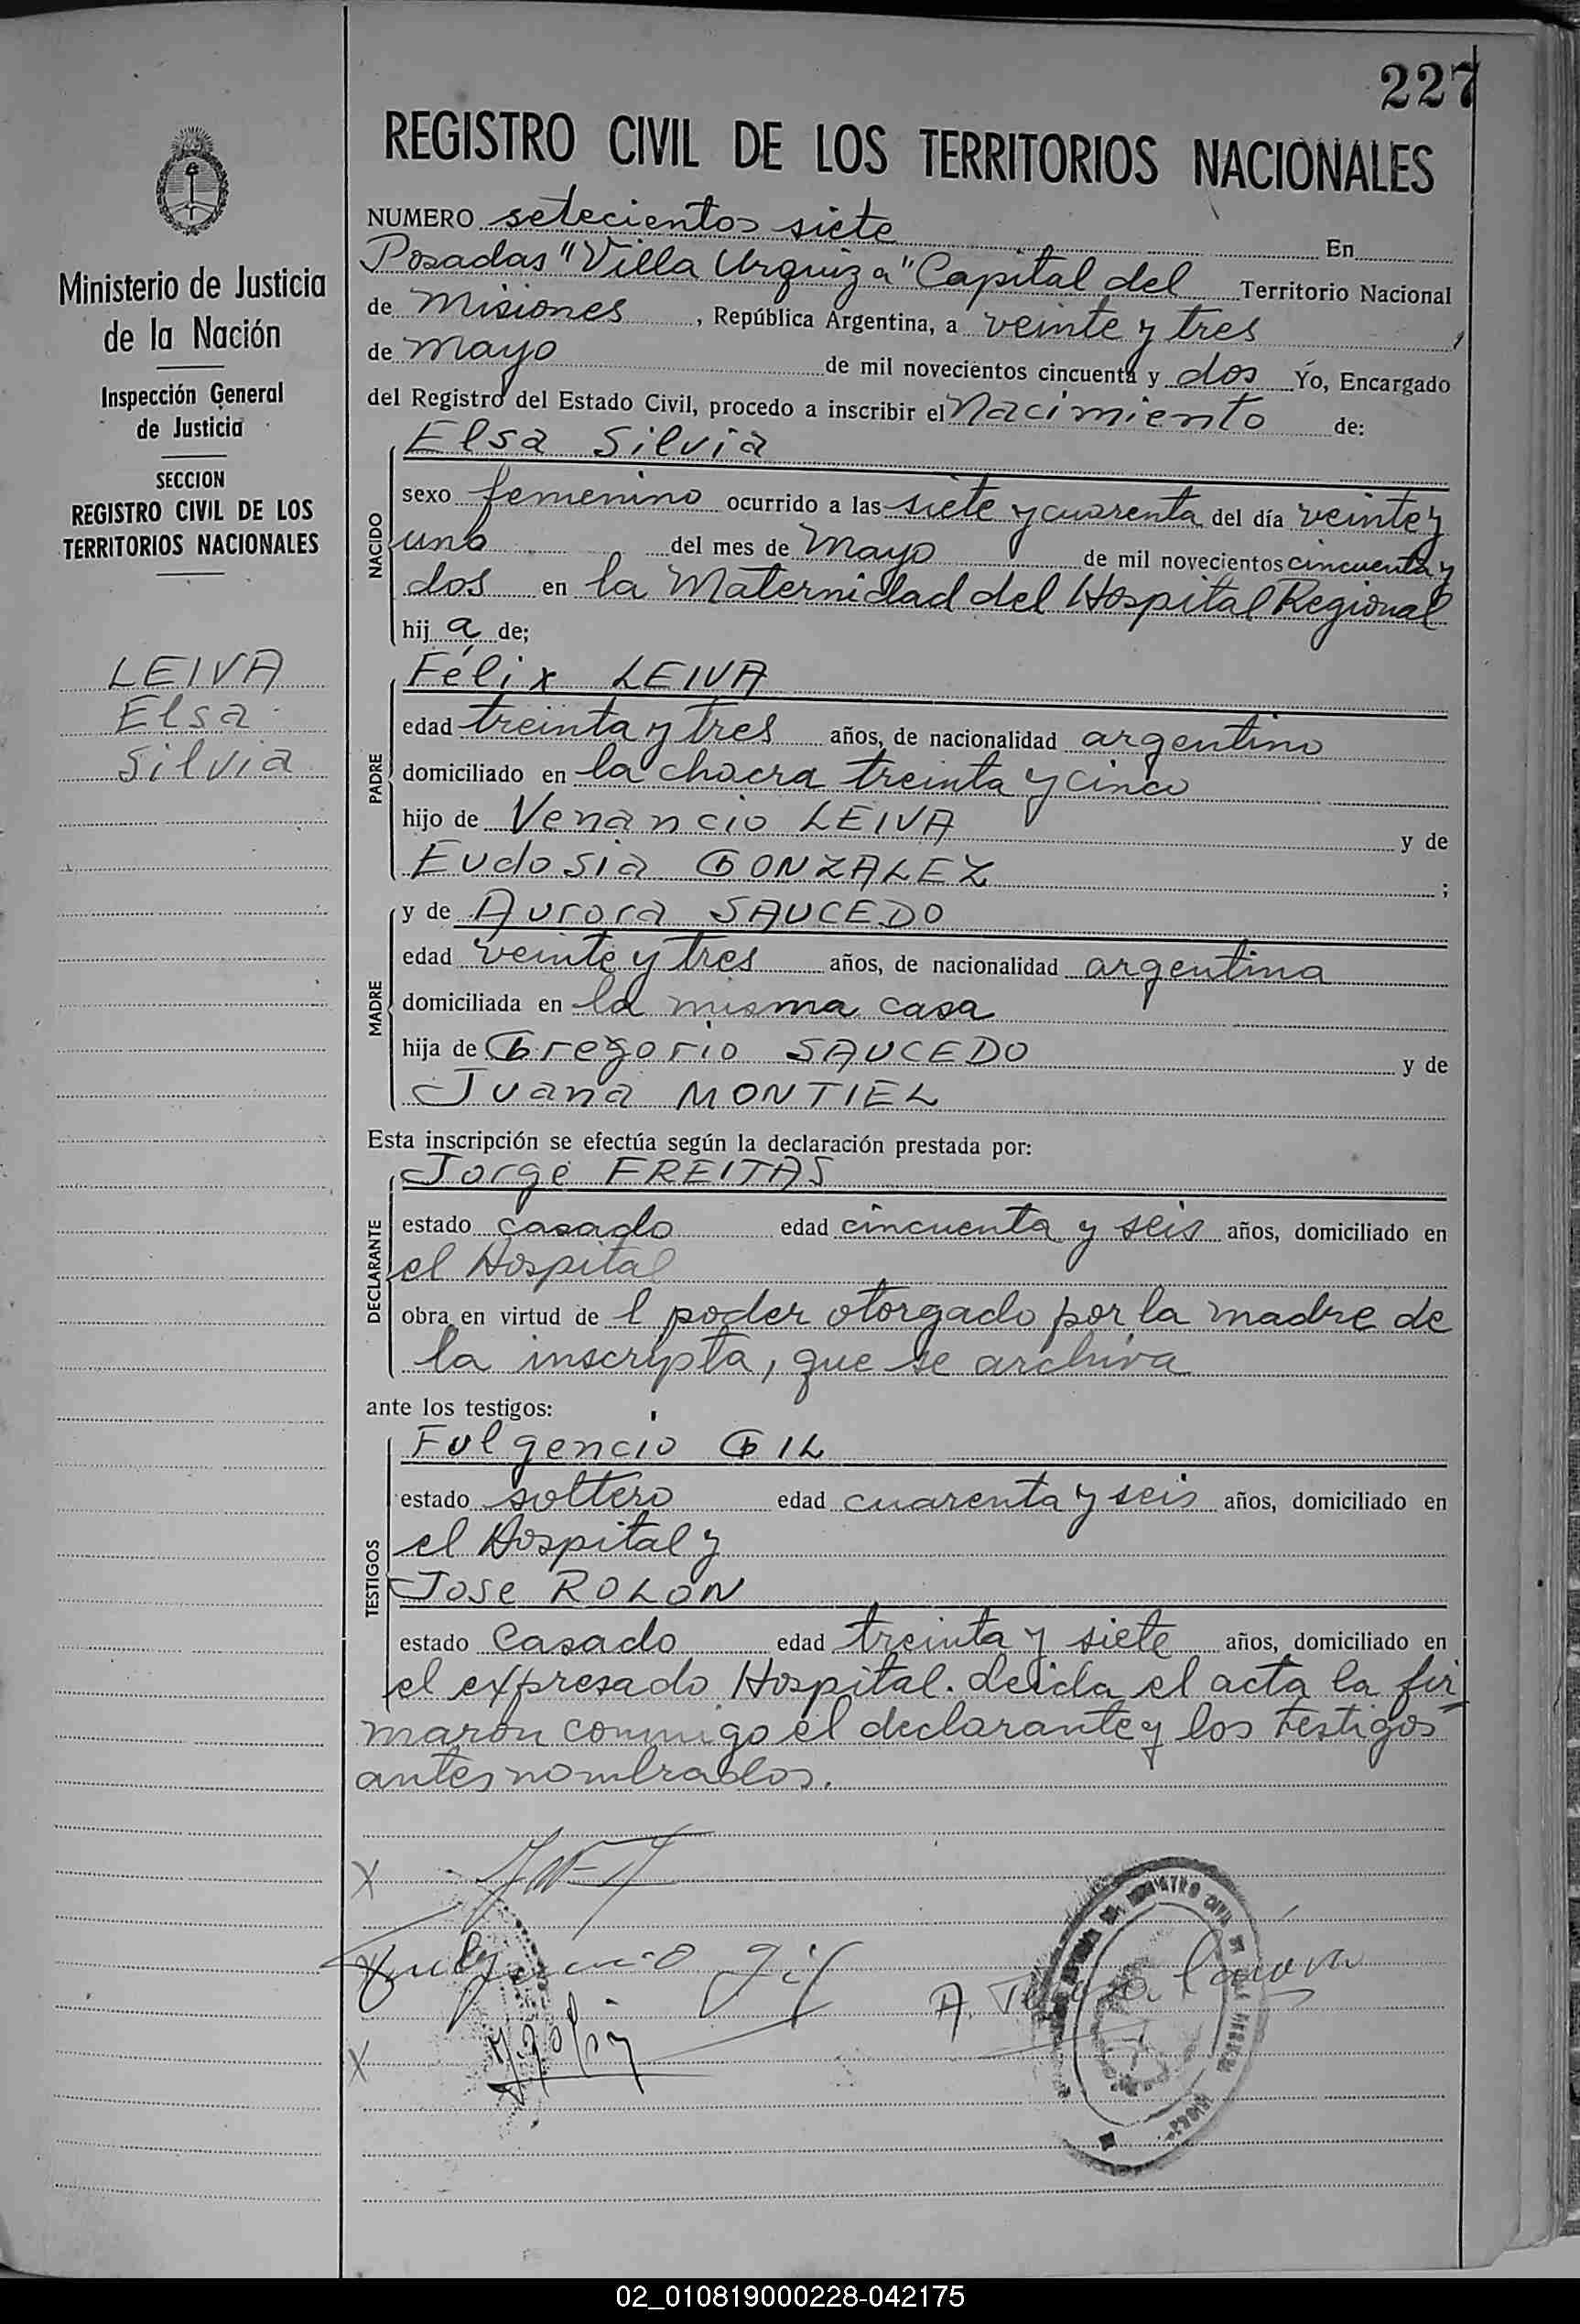 227
REGISTRO CIVIL DE LOS TERRITORIOS NACIONALES
Ministerio de Justicia
de la Nación
Inspección General
de Justicia
SECCION
REGISTRO CIVIL DE LOS
TERRITORIOS NACIONALES
LEIVA
Elsa
Silvia
NUMERO setecientos siete En
Posadas "Villa Urquiza" Capital del Territorio Nacional
de Misiones, República Argentina, a veinte y tres
de mayo de mil novecientos cincuenta y dos Yo, Encargado
del Registro del Estado Civil, procedo a inscribir el Nacimiento de:
NACIDO
Elsa Silvia
sexo femenino ocurrido a las siete y cuarenta del día veinte y
uno del mes de Mayo de mil novecientos cincuenta y
dos en la Maternidad del Hospital Regional
hij a de;
PADRE
Félix LEIVA
edad treinta y tres años, de nacionalidad argentino
domiciliado en la chacra treinta y cinco
hijo de Venancio LEIVA y de
Eudosia GONZALEZ ;
MADRE
y de Aurora SAUCEDO
edad veinte y tres años, de nacionalidad argentina
domiciliada en la misma casa
hija de Gregorio SAUCEDO y de
Juana MONTIEL
Esta inscripción se efectúa según la declaración prestada por:
DECLARANTE
Jorge FREITAS
estado casado edad cincuenta y seis años, domiciliado en
el Hospital
obra en virtud de l poder otorgado por la madre de
la inscripta, que se archiva
ante los testigos:
TESTIGOS
Fulgencio GIL
estado soltero edad cuarenta y seis años, domiciliado en
el Hospital y
Jose ROLON
estado Casado edad treinta y siete años, domiciliado en
el expresado Hospital. Leida el acta la fir
maron conmigo el declarante y los testigos
antes nombrados.
X
Fulgencio Gil
X
02_010819000228-042175